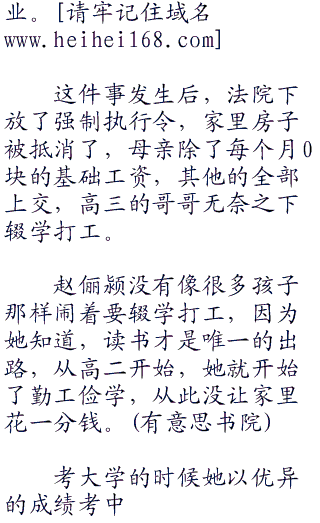 业。[请牢记住域名
www.heihei168.com]
这件事发生后，法院下
放了强制执行令，家里房子
被抵消了，母亲除了每个月0
块的基础工资，其他的全部
上交，高三的哥哥无奈之下
辍学打工。
赵俪颍没有像很多孩子
那样闹着要辍学打工，因为
她知道，读书才是唯一的出
路，从高二开始，她就开始
了勤工俭学，从此没让家里
花一分钱。(有意思书院)
考大学的时候她以优异
的成绩考中